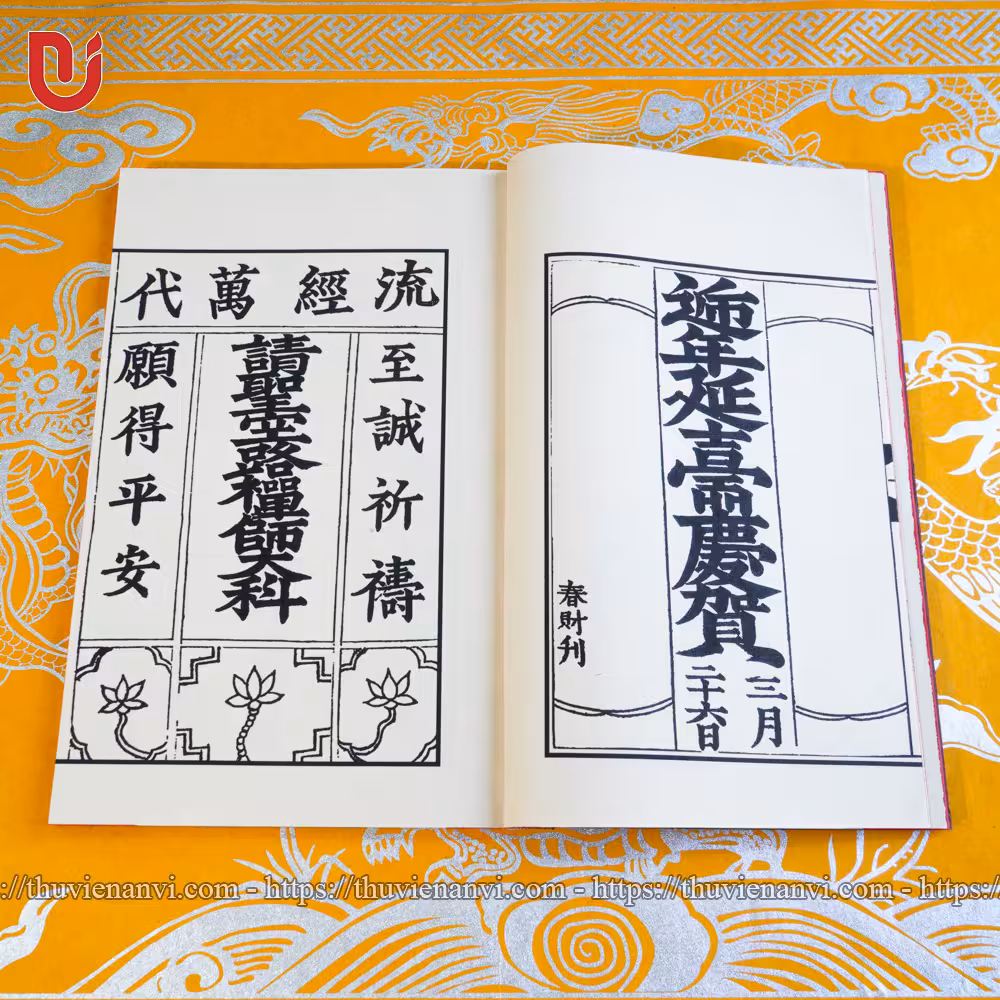 年延慶賀
三月
二十六日
春財刊
流經萬代
至誠祈禱
請聖空路禪師大科
願得平安
https://thuvienanvi.com - https://thuvienanvi.com - https://thuvienanvi.com - https://